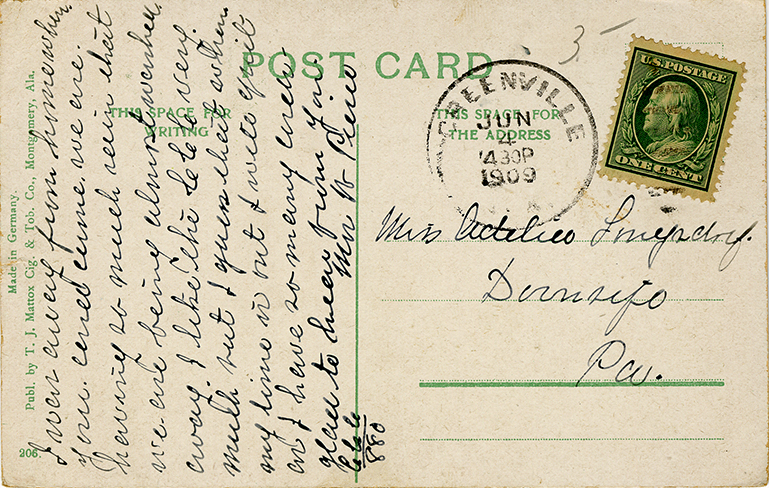 POST CARD
THIS SPACE FOR
WRITING
THIS SPACE FOR
THE ADDRESS
GREENVILLE
JUN
4
430P
1909
U.S. POSTAGE
ONE CENT
3-
Miss
Pa.
I was away from home when
your card came we are
having so much rain that
we are being almost washed
away. I like the lele very
much but I guess that when
my time is out I will quit
as I have so many cards
glad to hear from you
Mrs W
880
Made in Germany.
Publ. by T. J. Mattox Cig. & Tob. Co., Montgomery, Ala.
206.